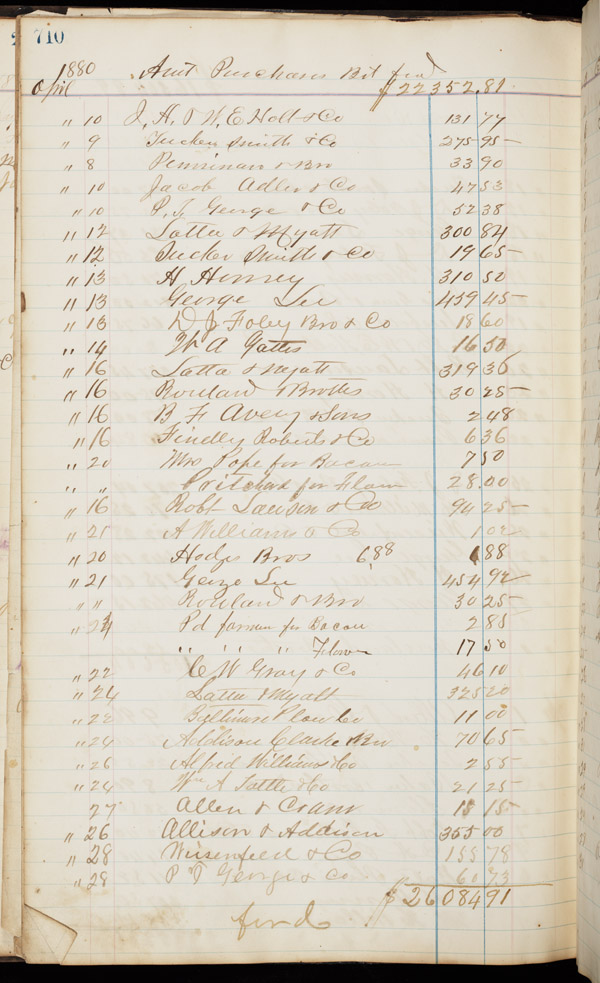 710
1880 Amt Purchases Bt ford
April $22352.81
" 10 J. H. & W. E Holt & Co 131 77
" 9 Tucker Smith & Co 275 95
" 8 Penniman & Bro 33 90
" 10 Jacob Adler & Co 47 53
" 10 P. T. George & Co 52 38
" 12 Latta & Myatt 300 84
" 12 Tucker Smith & Co 19 65
" 13 H Horney 310 50
" 13 George Lee 459 45
" 13 D J Foley Bro & Co 18 60
" 14 W A Gattis 16 50
" 16 Latta & Myatt 319 36
" 16 Rowland & Brothes 30 25
" 16 B F Avery & Sons 2 48
" 16 Findley Roberts & Co 6 36
" 20 Mrs Pope for Bacon 7 50
" " Pritchard for Flour 28.00
" 16 Robt Lawson & Co 94 25
" 21 A Williams & Co 1 02
" 20 Hodges Bros 6.88 6 88
" 21 George Lee 454 92
" " Rowland & Bro 30 25
" 24 Pd farmer for Bacon 2 85
" " " " Flower 17 50
" 22 C W Gray & Co 46 10
" 24 Latta & Myatt 325 20
" 22 Baltimore Plow Co 11 00
" 24 Addison Clarke & Bro 70 65
" 26 Alfred Williams & Co 2 55
" 24 Wm A Tottle & Co 21 25
27 Allen & Cram 15 15
" 26 Allison & Addison 365 00
" 28 Wiesenfeld & Co 155 78
" 28 P T George & Co 60 73
$26084 91
ford